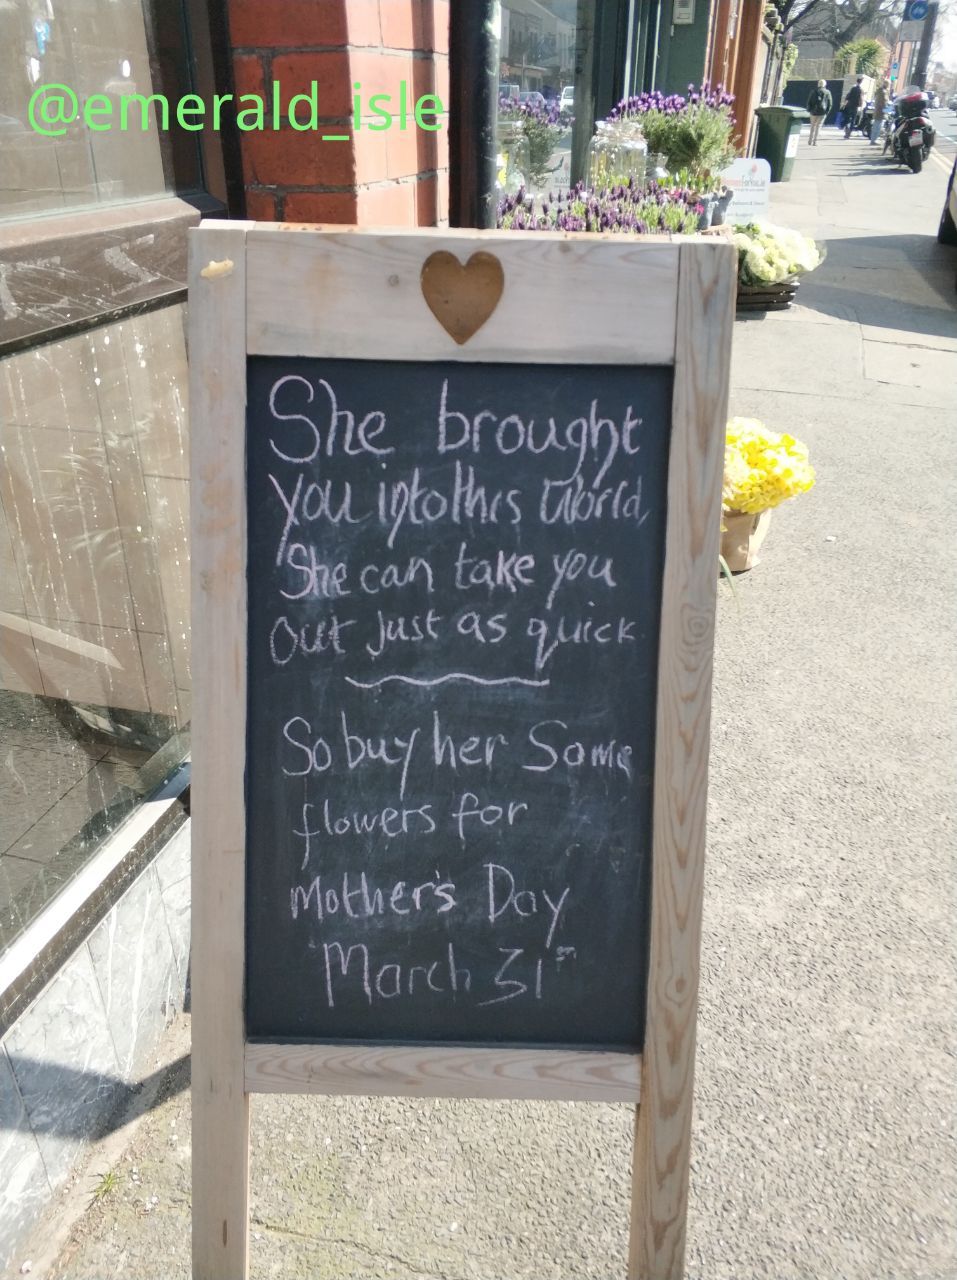 @emerald_isle
She brought
you into this world,
She can take you
out just as quick
So buy her Some
flowers for
Mother's Day
"March 31st"